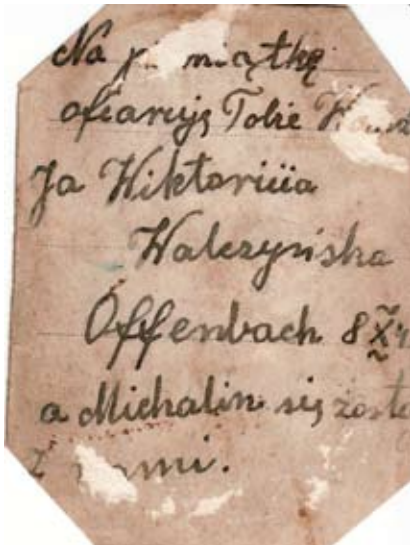 Na pamiątkę
ofiaruję Tobie
Ja Wiktoriia
Walczyńska
Offenbach 8 X
a Michalin się
z nami.